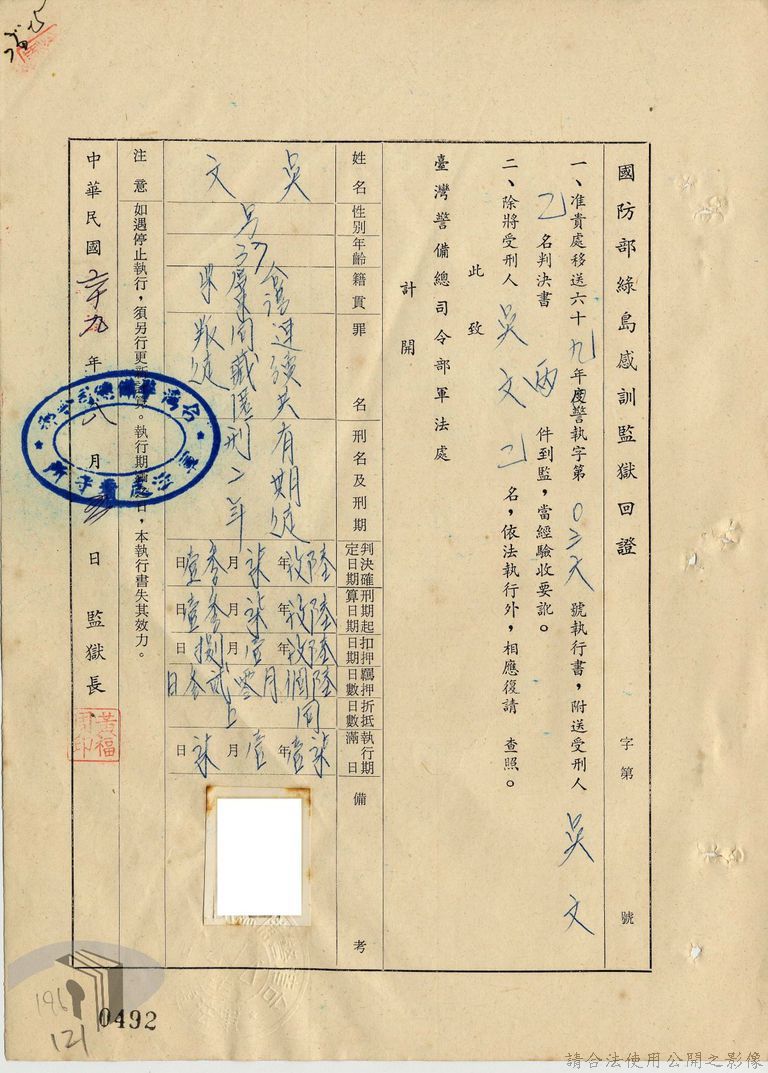 國防部綠島感訓監獄回證 字第 號
一、准貴處移送六十九年度警執字第 號執行書，附送受刑人 吳文
乙名判決書 兩 件到監，當經驗收要訖。
二、除將受刑人 吳文 乙 名，依法執行外，相應復請 查照。
此致
臺灣警備總司令部軍法處
計開
姓名 性別 年齡 籍貫 罪名 刑名及刑期 判決確定日期 刑期起算日期 扣押日期 羈押日數 折抵日數 執行期滿日 備考
吳文
男
37
台灣
屏東
連續共同藏匿叛徒
有期徒刑二年
陸玖年柒月參壹日
陸玖年柒月參壹日
陸玖年壹月捌日
陸個月零貳參日
同上
柒壹年壹月柒日
注意 如遇停止執行，須另行更新 算。執行期 日，本執行書失其效力。
中華民國六十九年八月 日 監獄長
黃福
用印
196
121
0492
請合法使用公開之影像